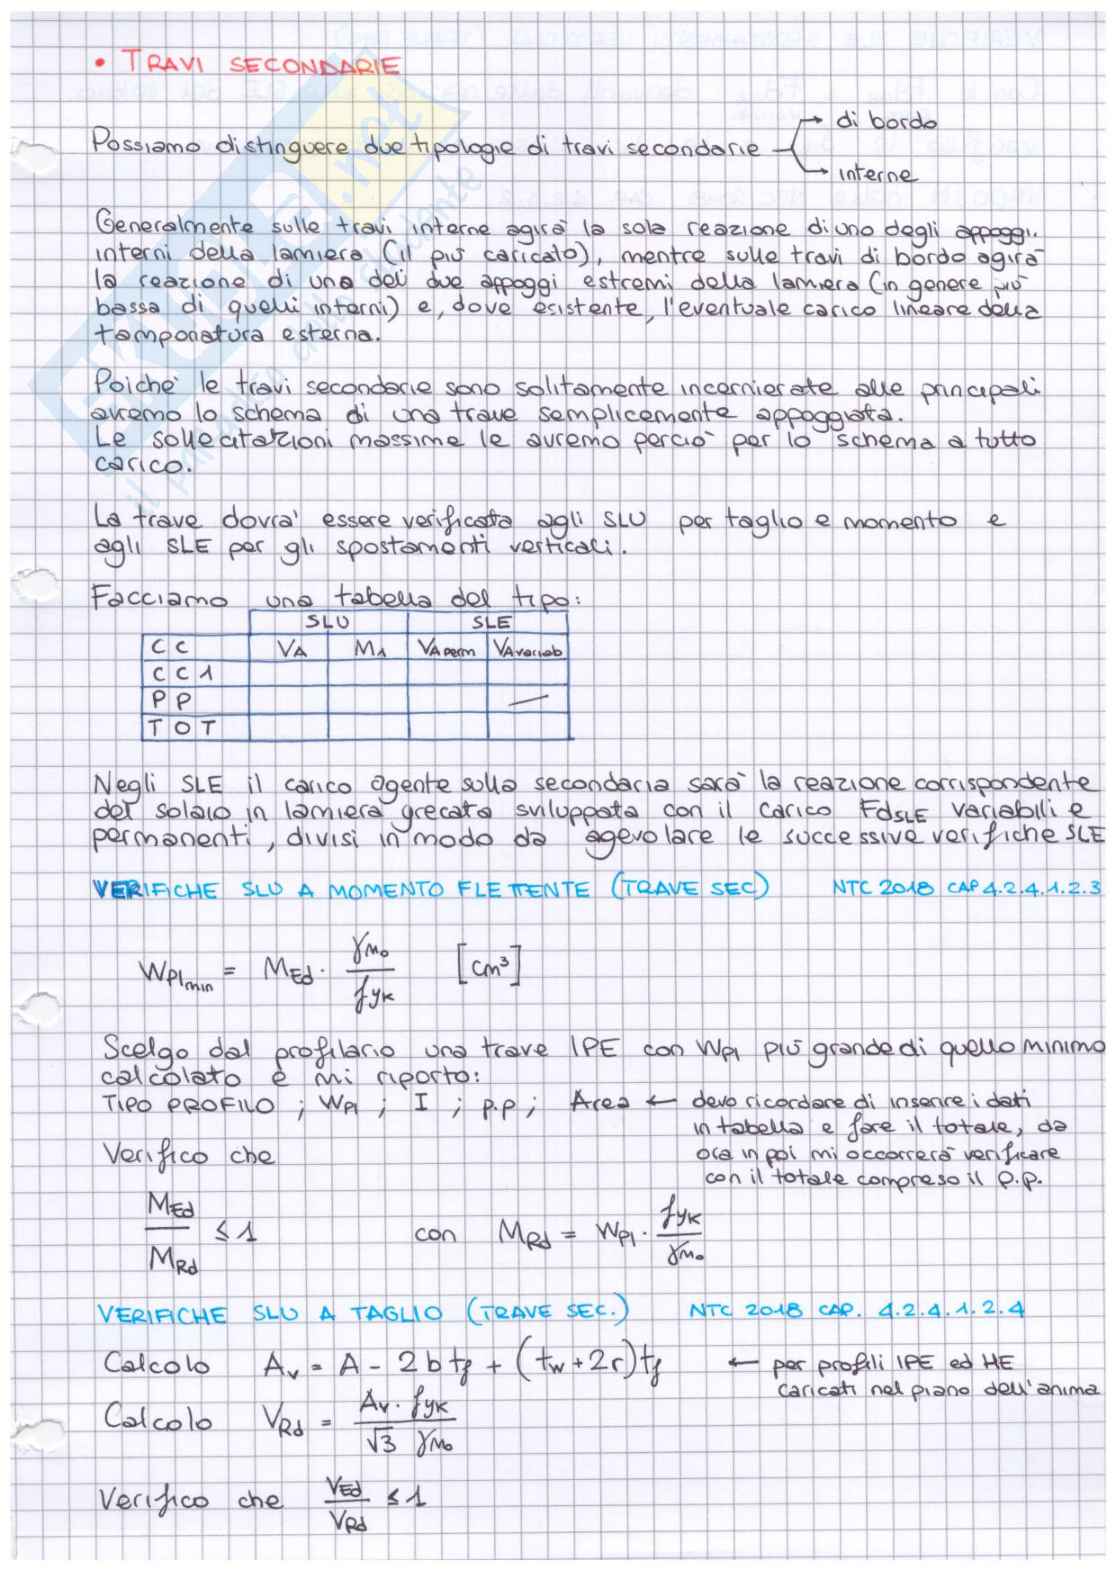 • TRAVI SECONDARIE
Possiamo distinguere due tipologie di travi secondarie → di bordo
→ interne
Generalmente sulle travi interne agirà la sola reazione di uno degli appoggi
interni della lamiera (il più caricato), mentre sulle travi di bordo agirà
la reazione di uno dei due appoggi estremi della lamiera (in genere più
bassa di quelli interni) e, dove esistente, l'eventuale carico lineare della
tamponatura esterna.
Poiché le travi secondarie sono solitamente incernierate alle principali
avremo lo schema di una trave semplicemente appoggiata.
Le sollecitazioni massime le avremo perciò per lo schema a tutto
carico.
La trave dovrà essere verificata agli SLU per taglio e momento e
agli SLE per gli spostamenti verticali.
Facciamo una tabella del tipo:
SLU SLE
CC VA M1 VA perm VA variab
CC1
PP —
TOT
Negli SLE il carico agente sulla secondaria sarà la reazione corrispondente
del solaio in lamiera grecata sviluppata con il carico FdSLE variabili e
permanenti, divisi in modo da agevolare le successive verifiche SLE
VERIFICHE SLU A MOMENTO FLETTENTE (TRAVE SEC) NTC 2018 CAP 4.2.4.1.2.3
Wpl min = MEd · γM0 / fyk [cm³]
Scelgo dal profilario una trave IPE con Wpl più grande di quello minimo
calcolato e mi riporto:
TIPO PROFILO ; Wpl ; I ; p.p ; Area ← devo ricordare di inserire i dati
in tabella e fare il totale, da
ora in poi mi occorrerà verificare
con il totale compreso il p.p.
Verifico che
MEd / MRd ≤ 1 con MRd = Wpl · fyk / γM0
VERIFICHE SLU A TAGLIO (TRAVE SEC.) NTC 2018 CAP. 4.2.4.1.2.4
Calcolo Av = A - 2btf + (tw + 2r)tf ← per profili IPE ed HE
caricati nel piano dell'anima
Calcolo VRd = Av · fyk / √3 γM0
Verifico che VEd / VRd ≤ 1